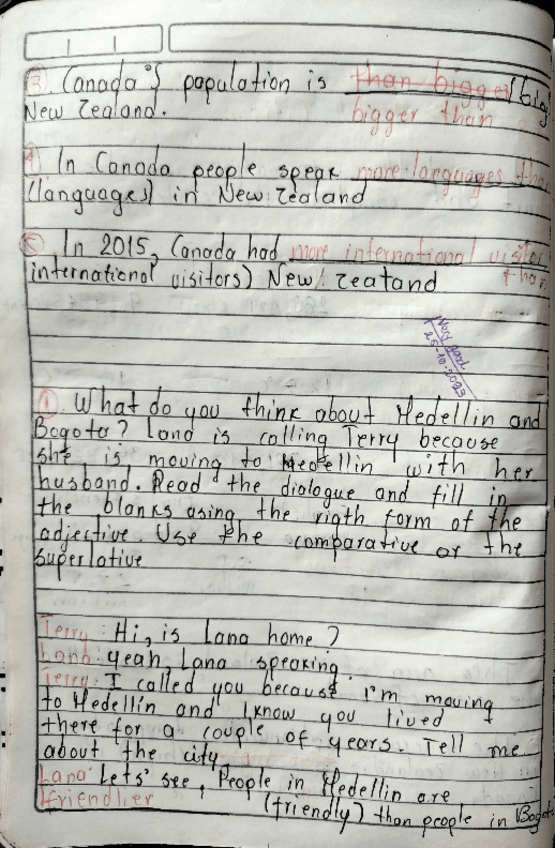 3. Canada's population is than bigger (big)
New Zealand. bigger than
4. In Canada people speak more languages than
(languages) in New Zealand
5. In 2015, Canada had more international visitor
international visitors) New Zeatand than
Very good
25-10-2023
1. What do you think about Medellin and
Bogota? Lana is calling Terry because
she is moving to Medellin with her
husband. Read the dialogue and fill in
the blanks using the rigth form of the
adjective Use the comparative or the
superlative
Terry: Hi, is Lana home?
Lana: yeah, Lana speaking.
Terry: I called you because I'm moving
to Medellin and I know you lived
there for a couple of years. Tell me
about the city
Lana: Lets' see, People in Medellin are
friendlier (friendly) than people in Bogot